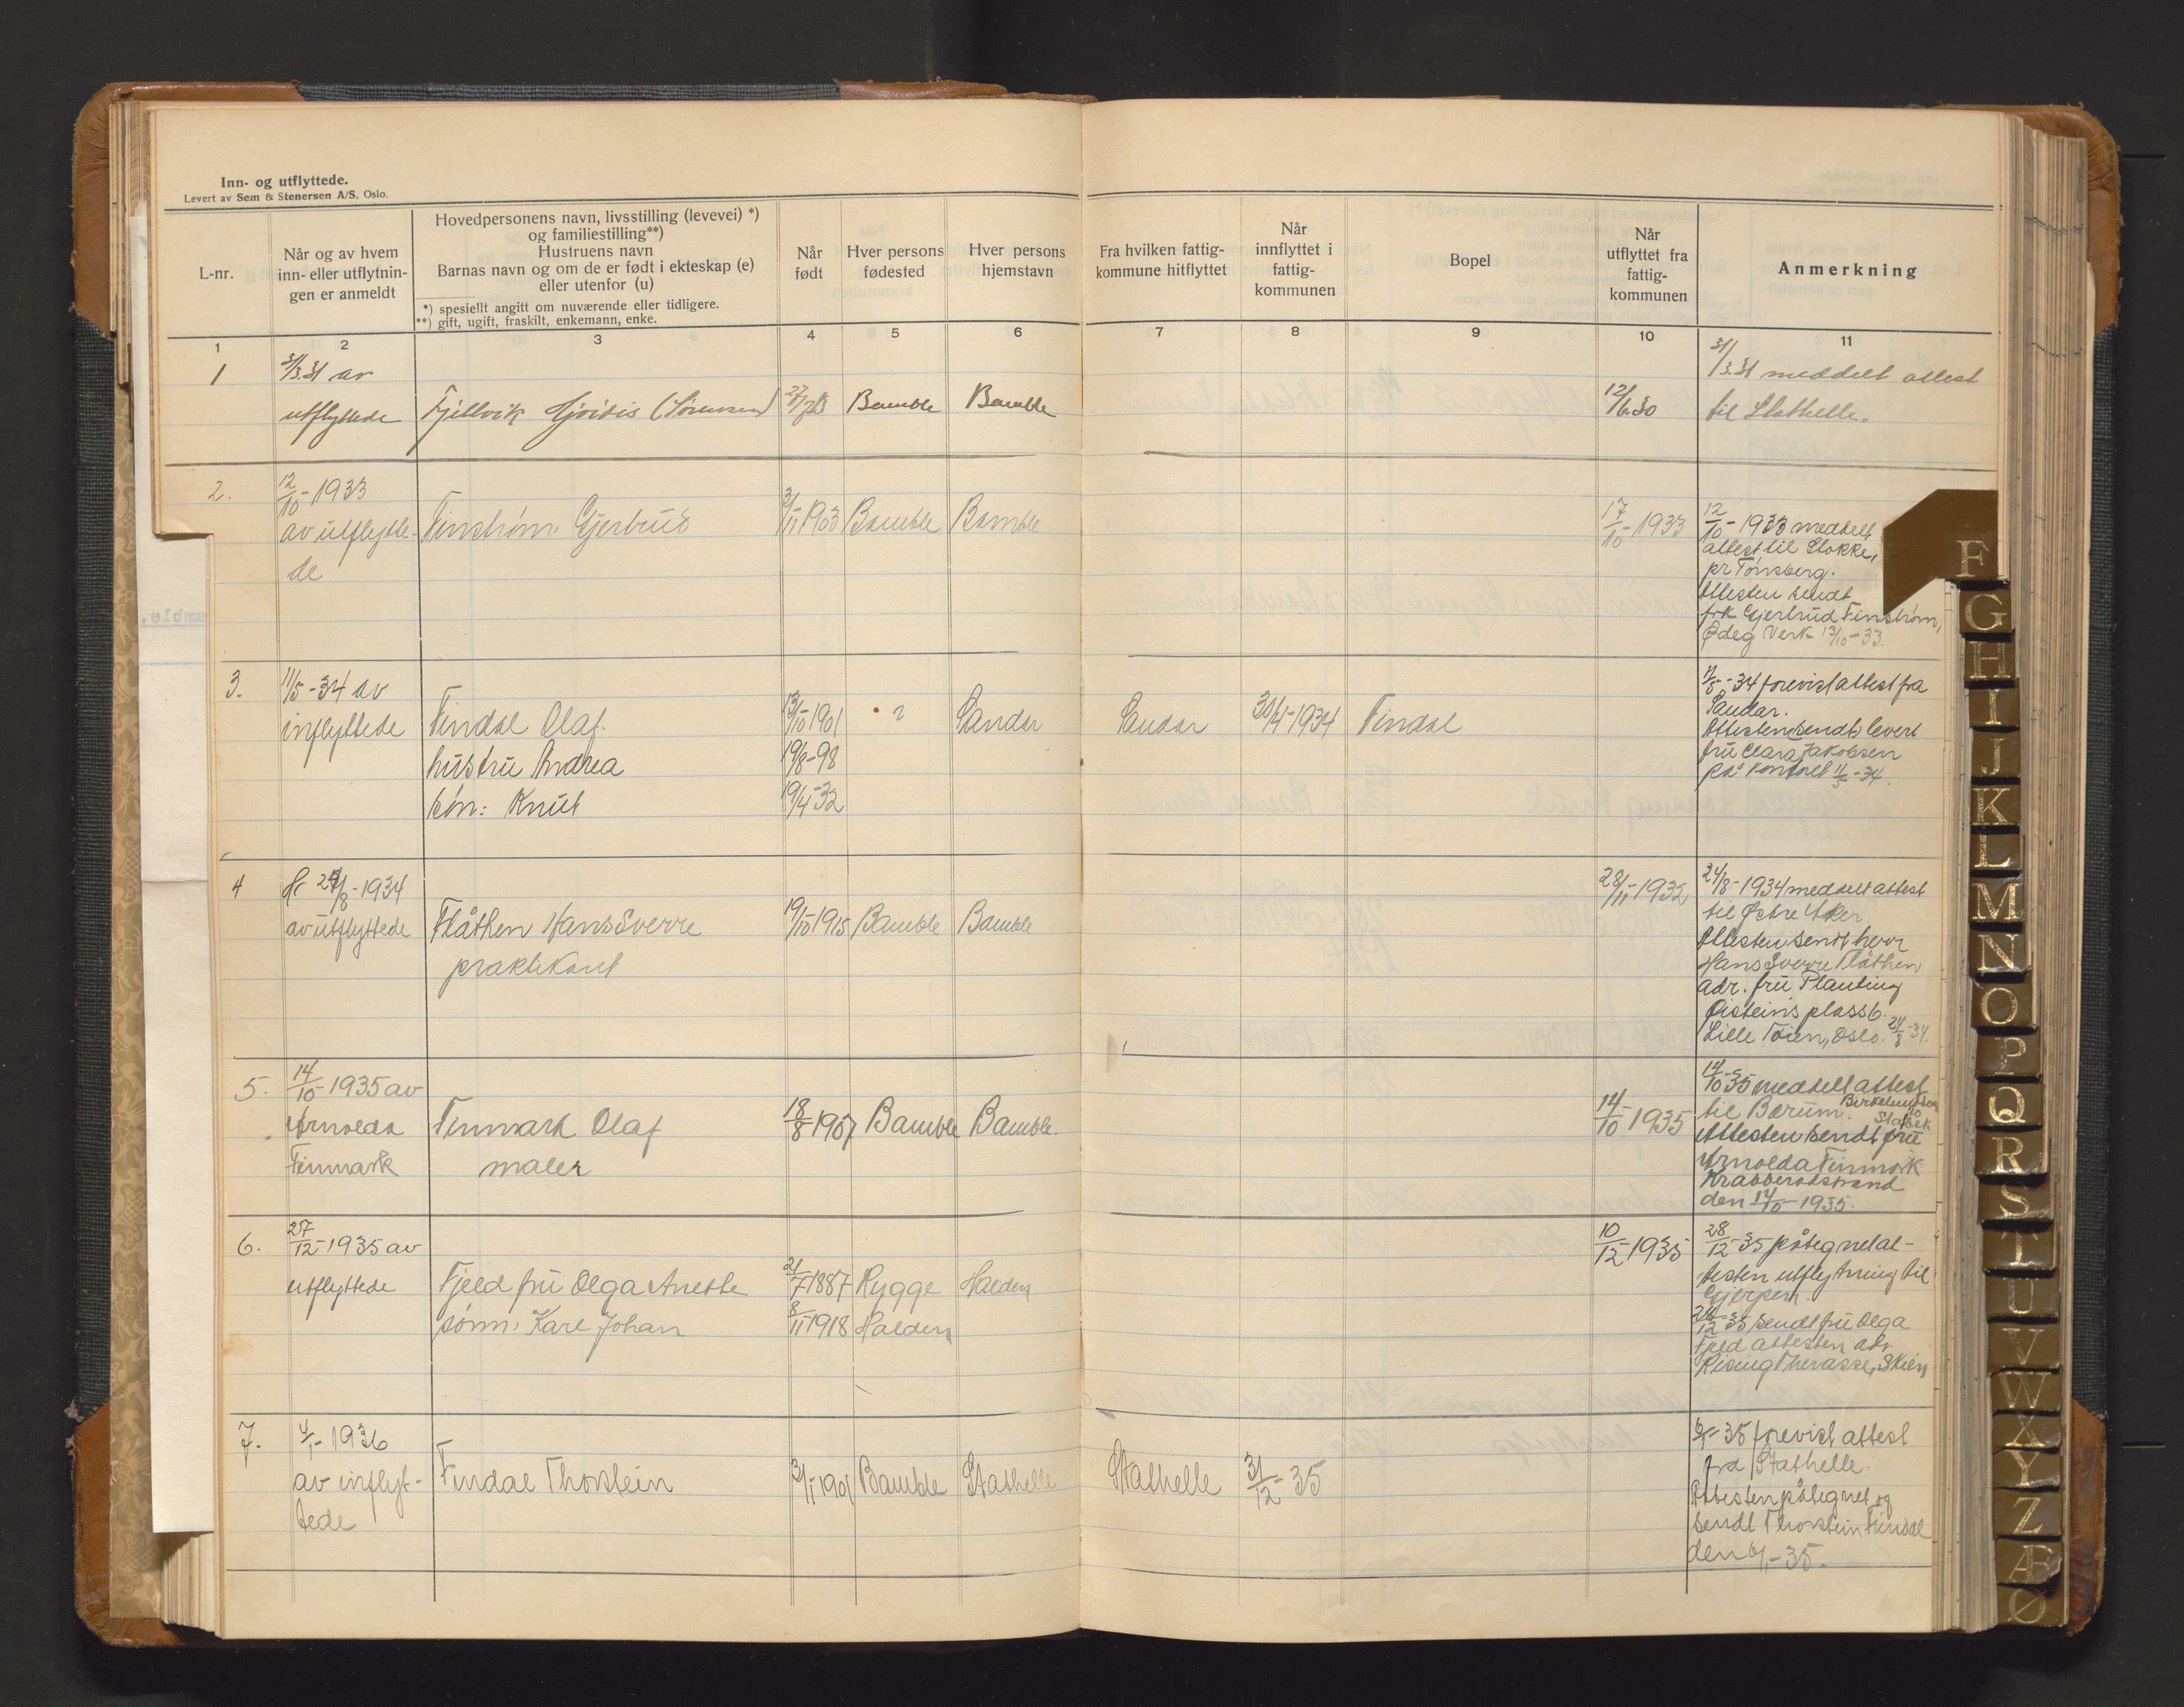 Inn- og utflyttede.
Levert av Sem & Stenersen A/S, Oslo.
L-nr.
Når og av hvem
inn- eller utflytnin-
gen er anmeldt
Hovedpersonens navn, livsstilling (levevei) *)
og familiestilling**)
Hustruens navn
Barnas navn og om de er født i ekteskap (e)
eller utenfor (u)
*) spesiellt angitt om nuværende eller tidligere.
**) gift, ugift, fraskilt, enkemann, enke.
Når
født
Hver persons
fødested
Hver persons
hjemstavn
Fra hvilken fattig-
kommune hitflyttet
Når
innflyttet i
fattig-
kommunen
Bopel
Når
utflyttet fra
fattig-
kommunen
Anmerkning
1 2 3 4 5 6 7 8 9 10 11
1
31/3.31 av
utflyttede
Fjellvik Hjördis (Sörensen)
Bamble
Bamble
12/6.30
31/3.31 meddelt attest
til Stathelle.
2.
12/10-1933
av utflytte-
de
Finström Gjertrud
3/11 1903
Bamble
Bamble
17/10-1933
12/10-1933 meddelt
attest til Stokke,
pr Tönsberg.
Attesten sendt
frk Gjertrud Finström,
Ødeg Verk 13/10-33.
3.
11/5-34 av
inflyttede
Findal Olaf.
hustru Andrea
sön: Knut
13/10 1901
19/8-98
19/4-32
?
Sandar
Sandar
30/4-1934
Findal
11/5-34 forevist attest fra
Sandar.
Attesten sendt levert
fru Clara Jakobsen
på kontoret 11/5-34.
4
24/8-1934
av utflyttede
Flåthen Hans Sverre
praktikant
19/10 1915
Bamble
Bamble
28/11-1932
24/8-1934 meddelt attest
til Østre Aker.
Attesten sendt herr
Hans Sverre Flåthen
adr. fru Planting
Øisteins plass 6.
Lille Töien, Oslo. 24/8-34.
5.
14/10-1935 av
Arnolda
Finmark
Finmark Olaf
maler
18/8 1907
Bamble
Bamble.
14/10-1935
14/10-35 meddelt attest
til Bærum.
Stabek
Attesten sendt fru
Arnolda Finmark
Krabberödstrand
den 14/10-1935.
6.
27/12-1935 av
utflyttede
Fjeld fru Olga Anette
sönn: Karl Johan
21/7 1887
8/11 1918
Rygge
Halden
Halden
10/12-1935
28/12-35 påtegnet at-
testen utflytning til
Gjerpen.
28/12-35 sendt fru Olga
Fjeld attesten adr.
Rising Therasse, Skien
7.
4/1-1936
av inflyt-
tede
Findal Thorstein
3/1-1901
Bamble
Stathelle
Stathelle
31/12-35
6/1-35 forevist attest
fra Stathelle.
Attesten påtegnet og
sendt Thorstein Findal
den 6/1-35.
F
G
H
I
J
K
L
M
N
O
P
Q
R
S
T
U
V
W
X
Y
Z
Æ
Ø